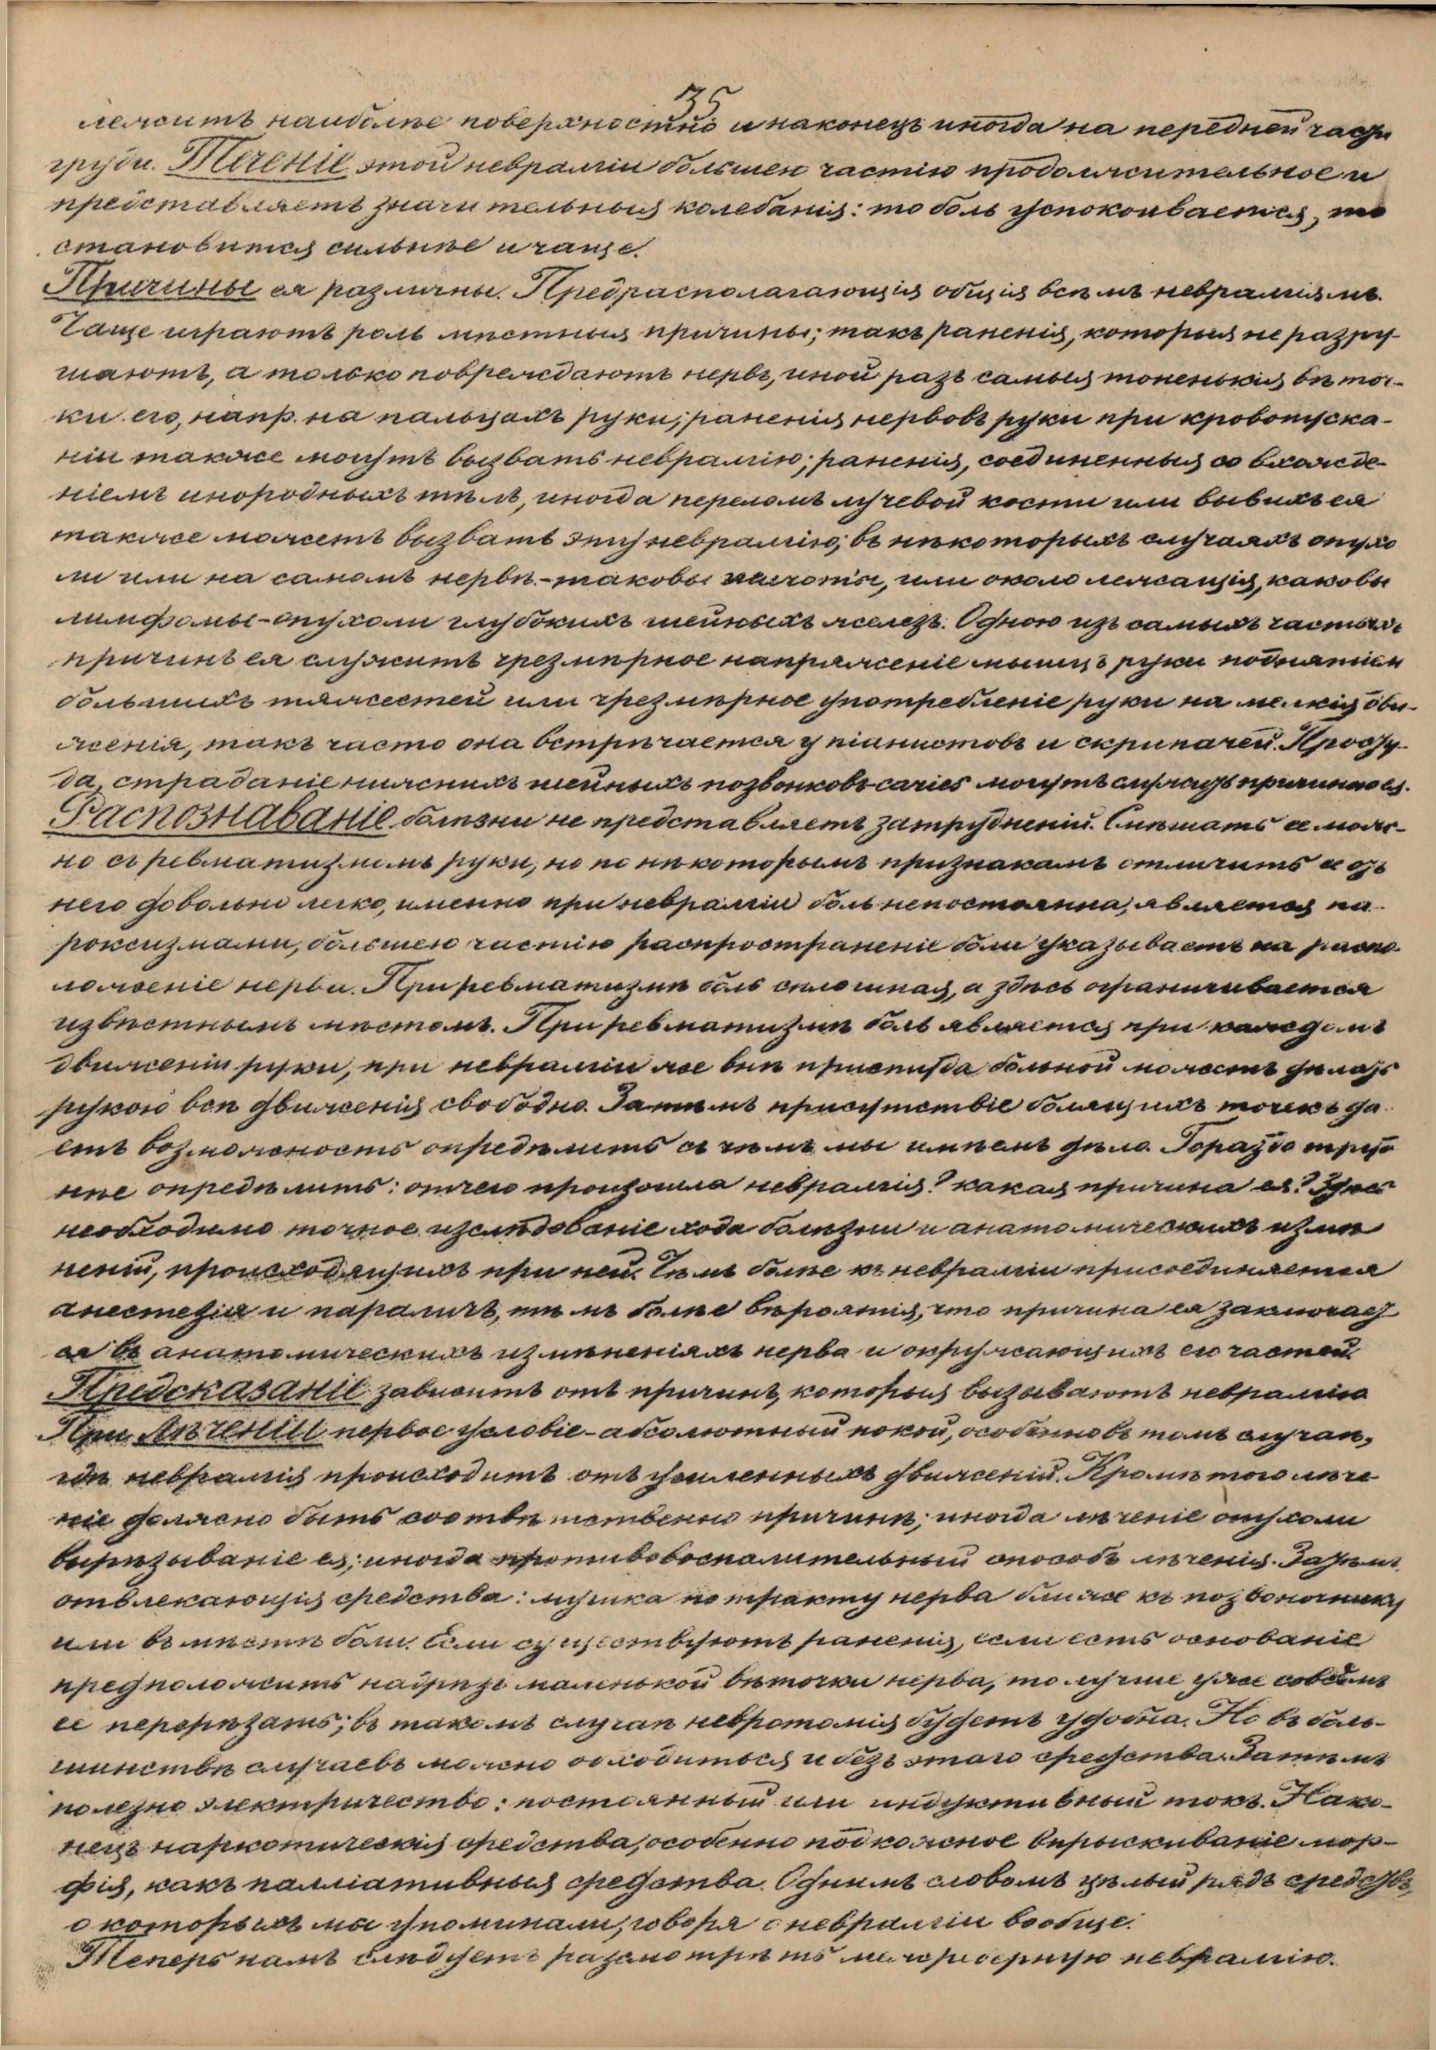 35
лежитъ наиболѣе поверхностно и наконецъ иногда на передней части
груди. Теченіе этой невралгіи большею частію продолжительное и
представляетъ значительныя колебанія: то боль успокоивается, то
становится сильнѣе и чаще.
Причины ея различны. Предрасполагающія общія всѣмъ невралгіямъ.
Чаще играютъ роль мѣстныя причины; такъ раненія, которыя не разру-
шаютъ, а только повреждаютъ нервъ, иной разъ самыя тоненькія вѣточ-
ки его, напр. на пальцахъ руки; раненія нервовъ руки при кровопуска-
ніи также могутъ вызвать невралгію; раненія, соединенныя со вхожде-
ніемъ инородныхъ тѣлъ, иногда переломъ лучевой кости или вывихъ ея
также можетъ вызвать эту невралгію; въ нѣкоторыхъ случаяхъ опухо
ли или на самомъ нервѣ - таковы, или около лежащія, каковы
лимфомы - опухоли глубокихъ шейныхъ железъ. Одною изъ самыхъ частыхъ
причинъ ея служитъ чрезмѣрное напряженіе мышцъ руки поднятіем
большихъ тяжестей или чрезмѣрное употребленіе руки на мелкія дви-
женія, такъ часто она встрѣчается у піанистовъ и скрипачей. Просту-
да, страданіе нижнихъ шейныхъ позвонковъ - caries могутъ служить причиною ея.
Распознаваніе болѣзни не представляетъ затрудненій. Смѣшать ее мож-
но съ ревматизмомъ руки, но по нѣкоторымъ признакамъ отличить ее отъ
него довольно легко, именно при невралгіи боль непостоянна, является па-
роксизмами, большею частію распространеніе боли указываетъ на распо-
ложеніе нерва. При ревматизмѣ боль сплошная, а здѣсь ограничивается
извѣстнымъ мѣстомъ. При ревматизмѣ боль является при каждомъ
движеніи руки, при невралгіи же внѣ приступа больной можетъ дѣлать
рукою всѣ движенія свободно. Затѣмъ присутствіе болящихъ точекъ да-
етъ возможность опредѣлить съ чѣмъ мы имѣемъ дѣло. Гораздо труд
нѣе опредѣлить: отчего произошла невралгія? какая причина ея? Здѣсь
необходимо точное изслѣдованіе хода болѣзни и анатомическихъ измѣ
неній, происходящихъ при ней. Чѣмъ болѣе къ невралгіи присоединяется
анестезія и параличъ, тѣмъ болѣе вѣроятія, что причина ея заключает
ся въ анатомическихъ измѣненіяхъ нерва и окружающихъ его частей.
Предсказаніе зависитъ отъ причинъ, которыя вызываютъ невралгію
При лѣченіи первое условіе - абсолютный покой, особенно въ томъ случаѣ,
гдѣ невралгія происходитъ отъ усиленныхъ движеній. Кромѣ того лѣче
ніе должно быть соотвѣтственно причинѣ; иногда лѣченіе опухоли
вырѣзываніе ея; иногда противовоспалительный способъ лѣченія. Затѣмъ
отвлекающія средства: мушка по тракту нерва ближе къ позвоночнику
или въ мѣстѣ боли. Если существуютъ раненія, если есть основаніе
предположить надрѣзъ маленькой вѣточки нерва, то лучше уже совсѣмъ
ее перерѣзать; въ такомъ случаѣ невротомія будетъ удобна. Но въ боль-
шинствѣ случаевъ можно обходиться и безъ этого средства. Затѣмъ
полезно электричество: постоянный или индуктивный токъ. Нако-
нецъ наркотическія средства, особенно подкожное впрыскиваніе мор-
фія, какъ палліативныя средства. Однимъ словомъ цѣлый рядъ средствъ,
о которыхъ мы упоминали, говоря о невралгіи вообще.
Теперь намъ слѣдуетъ разсмотрѣть межреберную невралгію.